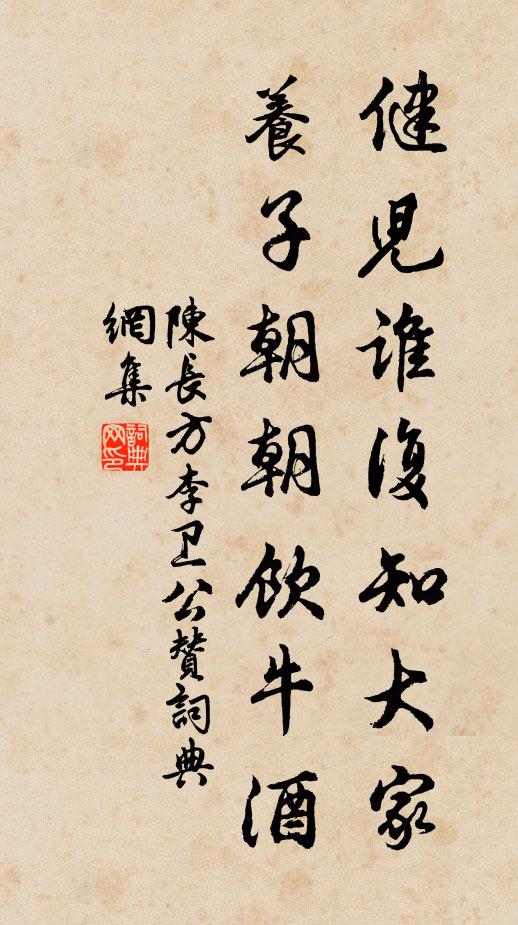 健児誰復知大家
養子朝朝飲牛酒
陳長方李卫公赞詞典
網集
詞典
网印